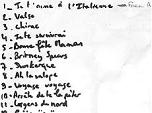 1_ To t'aime à l'Italienne
2_ Valse
3_ Chirac
4_ Late survivrai
5_ Bonne fête Maman
6_ Britney Spears
7_ Dunkerque
8_ Ah la salope
9_ Voyage voyage
10_ Arrête de la piter
11_ Corons du nord